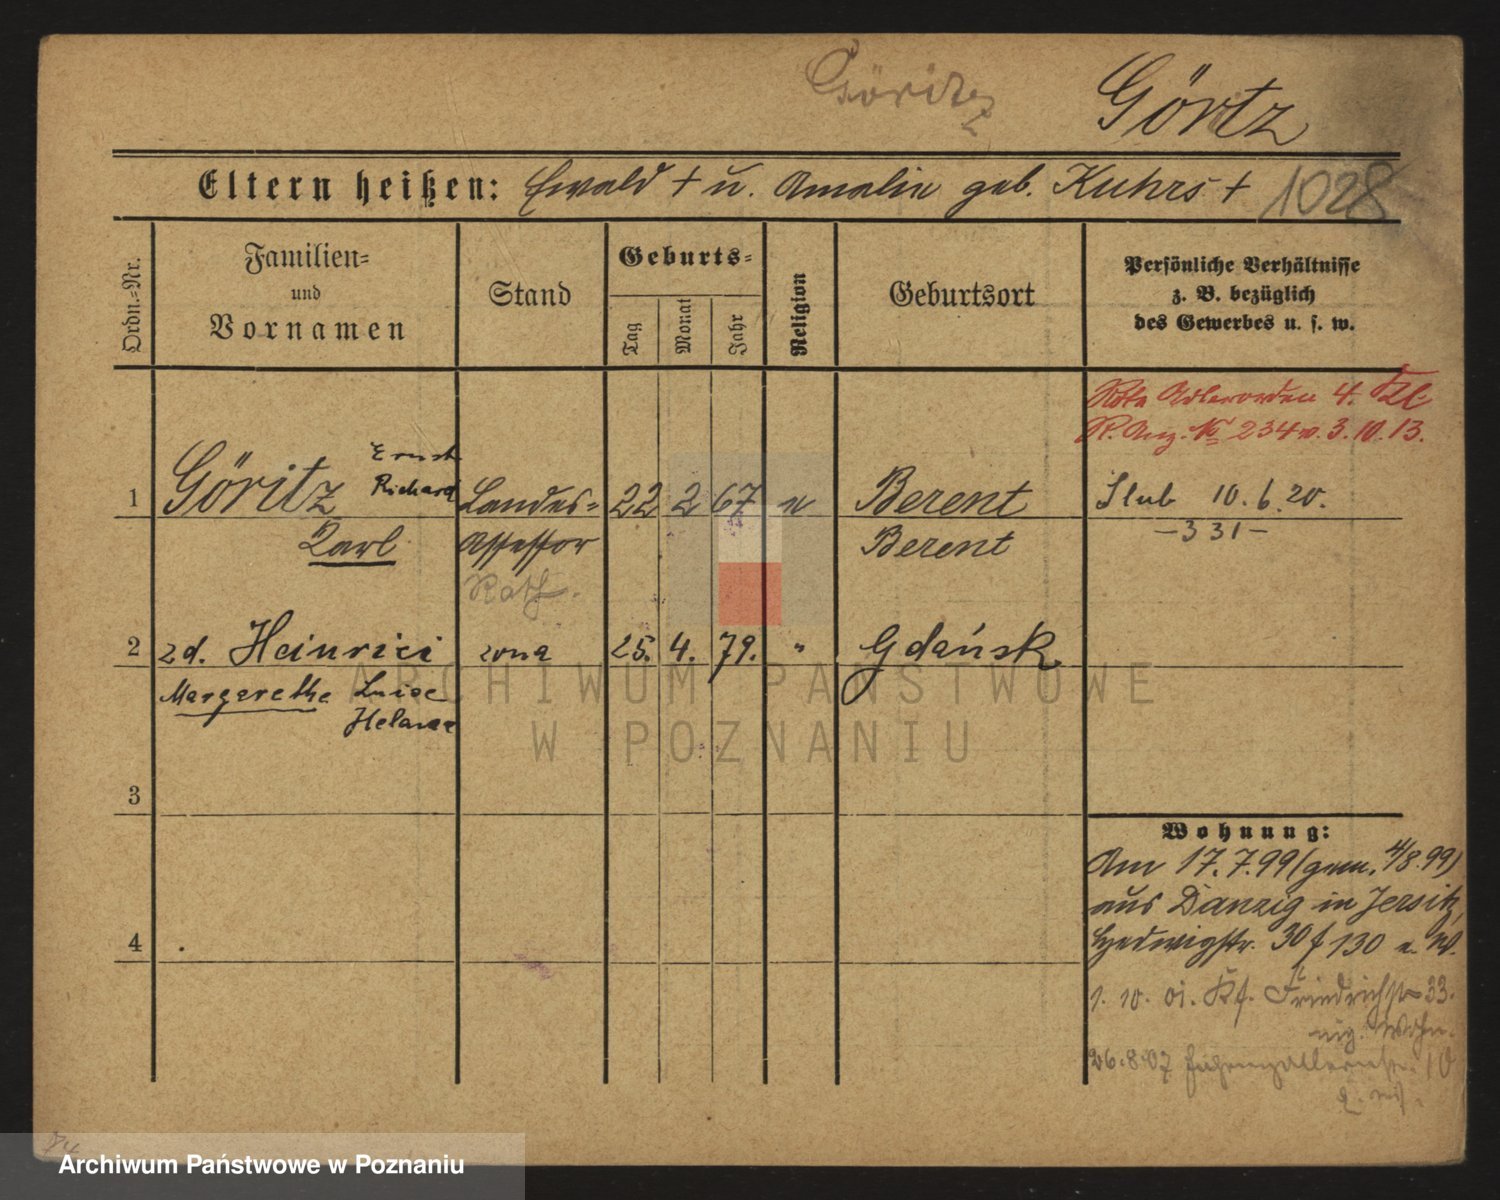 Göritz
Görtz
Eltern heißen: Ewald † u. Amalie geb. Kuhrs †
1028
Ordn.-Nr.
Familien-
und
Vornamen
Stand
Geburts-
Tag
Monat
Jahr
Religion
Geburtsort
Persönliche Verhältnisse
z. B. bezüglich
des Gewerbes u. s. w.
Rote Adlerorden 4. Kl.
R. Anz. № 234 v. 3.10.13.
Ernst
Richard
1 Göritz Landes- 22 2 67 Berent Slub 10.6.20.
Karl Assessor Berent -331-
Rath.
2 zd. Heinrici zona 25. 4. 79. " Gdańsk
Margarethe Luise
Helene
ARCHIWUM PAŃSTWOWE
W POZNANIU
3
Wohnung:
Am 17.7.99 (gem. 4/8.99)
aus Danzig in Jersitz,
4
Hedwigstr. 30 f 130 a. W.
1. 10. 01. Kf. Friedrichstr 33.
Wohn.
26.8.07 10
74
Archiwum Państwowe w Poznaniu